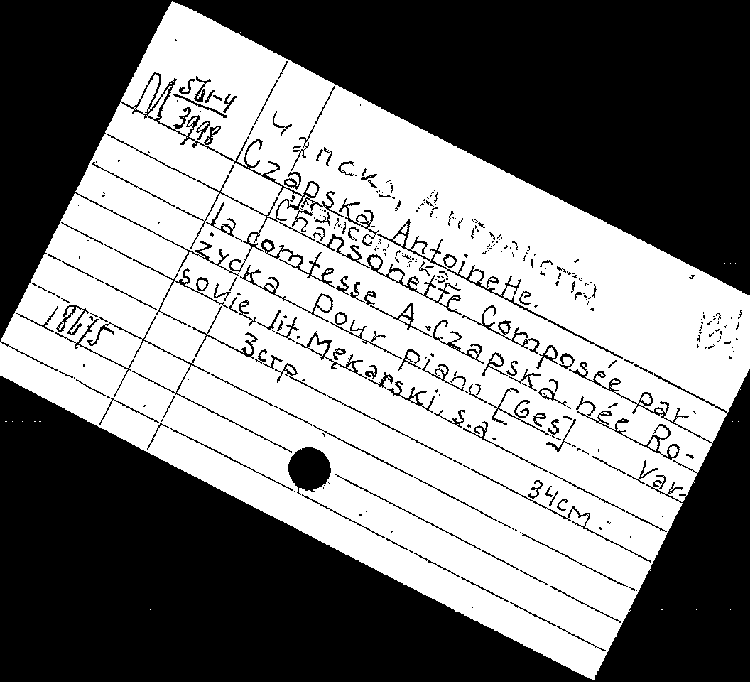 М 561-4
3998
Чапска, Антуанетта.
Czapska, Antoinette.
Chansonette. Composée par
la comtesse A. Czapska, née Ro-
życka. pour piano [Ges]. Var-
sovie, lit. Mękarski, s.a.
3 стр. 34 см.
18675